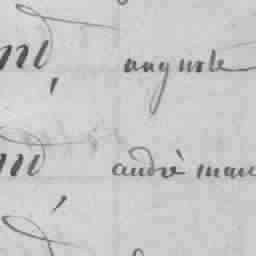 nd, auguste
nd, andré mar